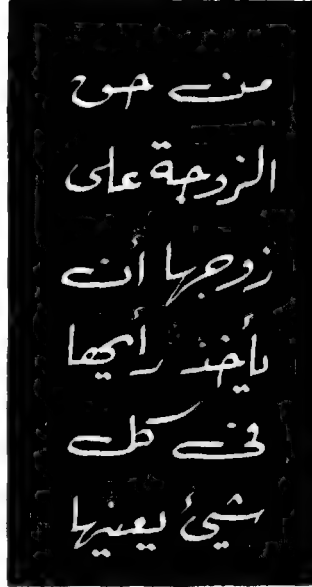 من حق
الزوجة على
زوجها أن
يأخذ رأيها
في كل
شيئ يعنيها